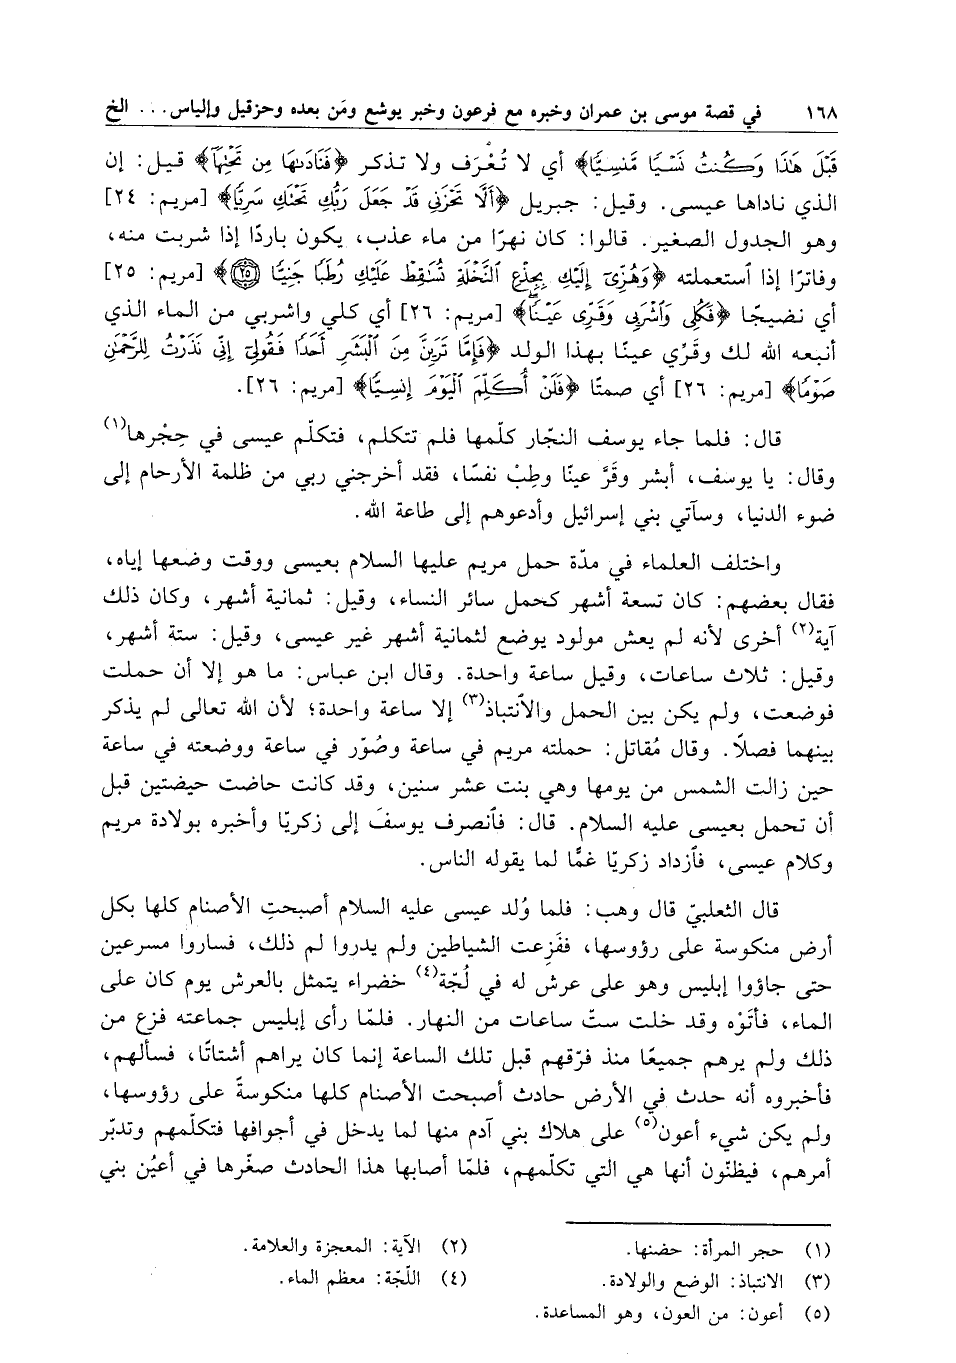 ١٦٨ في قصة موسى بن عمران وخبره مع فرعون وخبر يوشع ومَن بعده وحزقيل وإلياس... الخ
قَبْلَ هَٰذَا وَكُنتُ نَسْيًا مَّنسِيًّا﴾ أي لا تُعْرَف ولا تذكر ﴿فَنَادَىٰهَا مِن تَحْتِهَآ﴾ قيل: إن
الذي ناداها عيسى. وقيل: جبريل ﴿أَلَّا تَحْزَنِي قَدْ جَعَلَ رَبُّكِ تَحْتَكِ سَرِيًّا﴾ [مريم: ٢٤]
وهو الجدول الصغير. قالوا: كان نهرًا من ماء عذب، يكون باردًا إذا شربت منه،
وفاترًا إذا ٱستعملته ﴿وَهُزِّىٓ إِلَيْكِ بِجِذْعِ ٱلنَّخْلَةِ تُسَٰقِطْ عَلَيْكِ رُطَبًا جَنِيًّا ۝٢٥﴾ [مريم: ٢٥]
أي نضيجًا ﴿فَكُلِى وَٱشْرَبِى وَقَرِّى عَيْنًاۖ﴾ [مريم: ٢٦] أي كلي واشربي من الماء الذي
أنبعه الله لك وقَرِّي عينًا بهذا الولد ﴿فَإِمَّا تَرَيِنَّ مِنَ ٱلْبَشَرِ أَحَدًا فَقُولِىٓ إِنِّى نَذَرْتُ لِلرَّحْمَٰنِ
صَوْمًا﴾ [مريم: ٢٦] أي صمتًا ﴿فَلَنْ أُكَلِّمَ ٱلْيَوْمَ إِنسِيًّا﴾ [مريم: ٢٦].
قال: فلما جاء يوسف النجّار كلّمها فلم تتكلم، فتكلّم عيسى في حِجْرها(١)
وقال: يا يوسف، أبشر وقَرَّ عينًا وطِبْ نفسًا، فقد أخرجني ربي من ظلمة الأرحام إلى
ضوء الدنيا، وسآتي بني إسرائيل وأدعوهم إلى طاعة الله.
واختلف العلماء في مدّة حمل مريم عليها السلام بعيسى ووقت وضعها إياه،
فقال بعضهم: كان تسعة أشهر كحمل سائر النساء، وقيل: ثمانية أشهر، وكان ذلك
آية(٢) أخرى لأنه لم يعش مولود يوضع لثمانية أشهر غير عيسى، وقيل: ستة أشهر،
وقيل: ثلاث ساعات، وقيل ساعة واحدة. وقال ابن عباس: ما هو إلا أن حملت
فوضعت، ولم يكن بين الحمل والٱنتباذ(٣) إلا ساعة واحدة؛ لأن الله تعالى لم يذكر
بينهما فصلًا. وقال مُقاتل: حملته مريم في ساعة وصُوّر في ساعة ووضعته في ساعة
حين زالت الشمس من يومها وهي بنت عشر سنين، وقد كانت حاضت حيضتين قبل
أن تحمل بعيسى عليه السلام. قال: فٱنصرف يوسفَ إلى زكريّا وأخبره بولادة مريم
وكلام عيسى، فٱزداد زكريّا غمًّا لما يقوله الناس.
قال الثعلبيّ قال وهب: فلما وُلد عيسى عليه السلام أصبحتِ الأصنام كلها بكل
أرض منكوسة على رؤوسها، ففَزِعت الشياطين ولم يدروا لم ذلك، فساروا مسرعين
حتى جاؤوا إبليس وهو على عرش له في لُجّة(٤) خضراء يتمثل بالعرش يوم كان على
الماء، فأتَوْه وقد خلت ستّ ساعات من النهار. فلمّا رأى إبليس جماعته فزع من
ذلك ولم يرهم جميعًا منذ فرّقهم قبل تلك الساعة إنما كان يراهم أشتاتًا، فسألهم،
فأخبروه أنه حدث في الأرض حادث أصبحت الأصنام كلها منكوسةً على رؤوسها،
ولم يكن شيء أعون(٥) على هلاك بني آدم منها لما يدخل في أجوافها فتكلّمهم وتدبّر
أمرهم، فيظنّون أنها هي التي تكلّمهم، فلمّا أصابها هذا الحادث صغّرها في أعيُن بني
(١) حجر المرأة: حضنها.
(٢) الآية: المعجزة والعلامة.
(٣) الانتباذ: الوضع والولادة.
(٤) اللّجّة: معظم الماء.
(٥) أعون: من العون، وهو المساعدة.